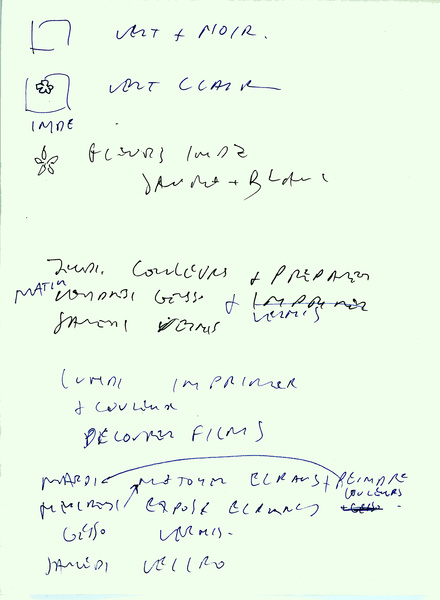 VERT + NOIR.
VERT CLAIR
IMDE
FLEURS IMDE
JAUNE + BLANC
JEUDI COULEURS + PREPARER
MATIN VENDREDI GESSO + IMPRIMER
VERNIS
SAMEDI VERNIS
LUNDI IMPRIMER
+ COULEUR
DECOUPER FILMS
MARDI NETOYER ECRANS + PEINDRE
COULEURS
MERCREDI EXPOSE ECRANS GESSO.
GESSO VERNIS.
SAMEDI VELCRO